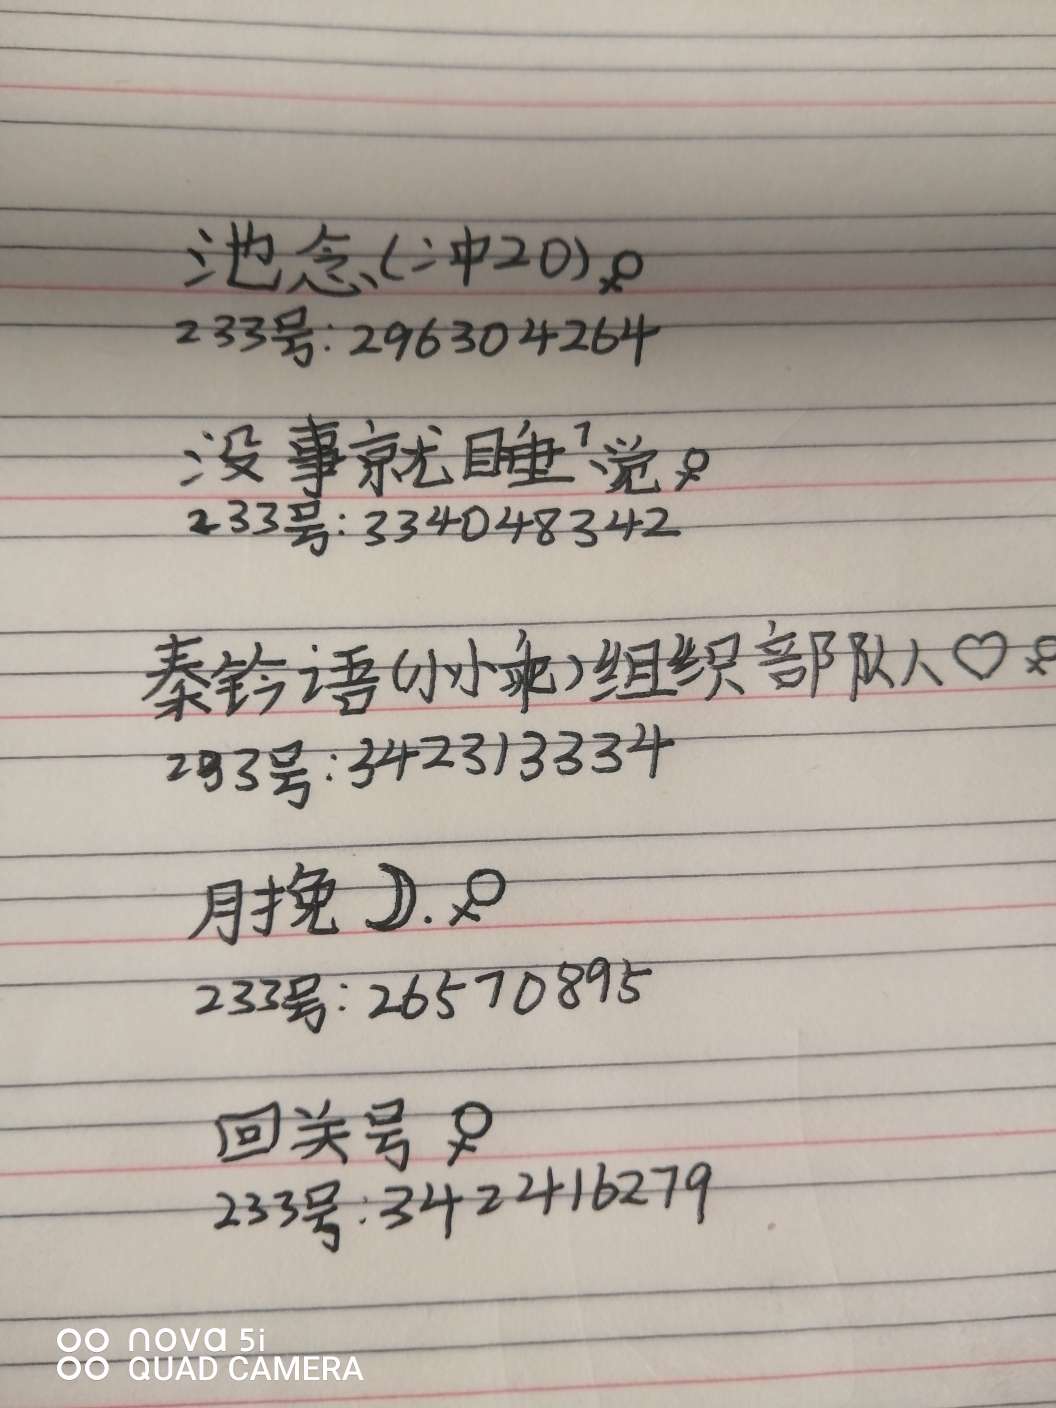 池念(冲20)♀
233号:296304264
没事就睡觉♀
233号:334048342
秦铃语(小小乖)组织部队人♡♀
233号:342313334
月挽☽.♀
233号:26570895
回关号♀
233号:342416279
nova 5i
QUAD CAMERA